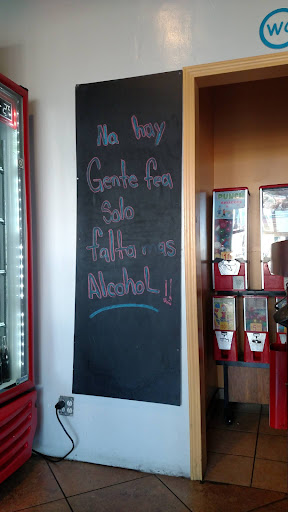 ¡No hay
Gente fea
Solo
falta mas
Alcohol!!